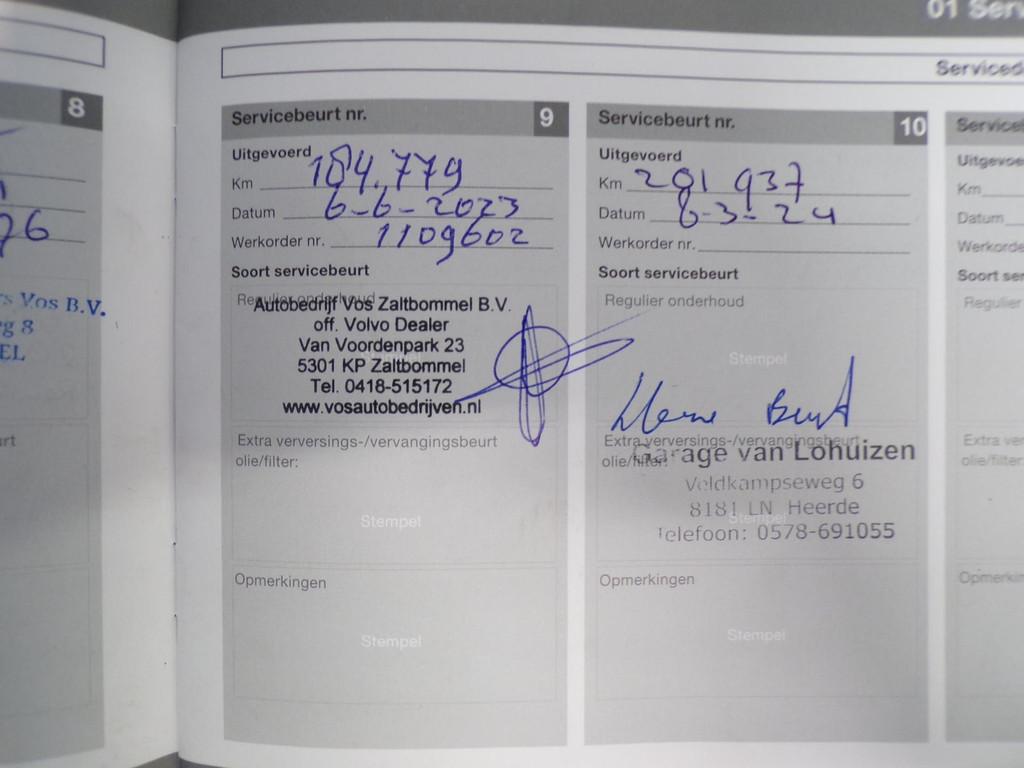 01 Serv
Serviced
8
76
s Vos B.V.
g 8
EL
rt
Servicebeurt nr. 9
Uitgevoerd
Km 184.779
Datum 6-6-2023
Werkorder nr. 1109602
Soort servicebeurt
Regulier onderhoud
Autobedrijf Vos Zaltbommel B.V.
off. Volvo Dealer
Van Voordenpark 23
5301 KP Zaltbommel
Tel. 0418-515172
www.vosautobedrijven.nl
Extra verversings-/vervangingsbeurt
olie/filter:
Stempel
Opmerkingen
Stempel
Servicebeurt nr. 10
Uitgevoerd
Km 201 937
Datum 6-3-24
Werkorder nr.
Soort servicebeurt
Regulier onderhoud
Stempel
Kleine Beurt
Extra verversings-/vervangingsbeurt
olie/filter:
Garage van Lohuizen
Veldkampseweg 6
8181 LN Heerde
Stempel
Telefoon: 0578-691055
Opmerkingen
Stempel
Servicebe
Uitgevoe
Km
Datum
Werkorde
Soort ser
Regulier
Extra ve
olie/filte
Opmerkin